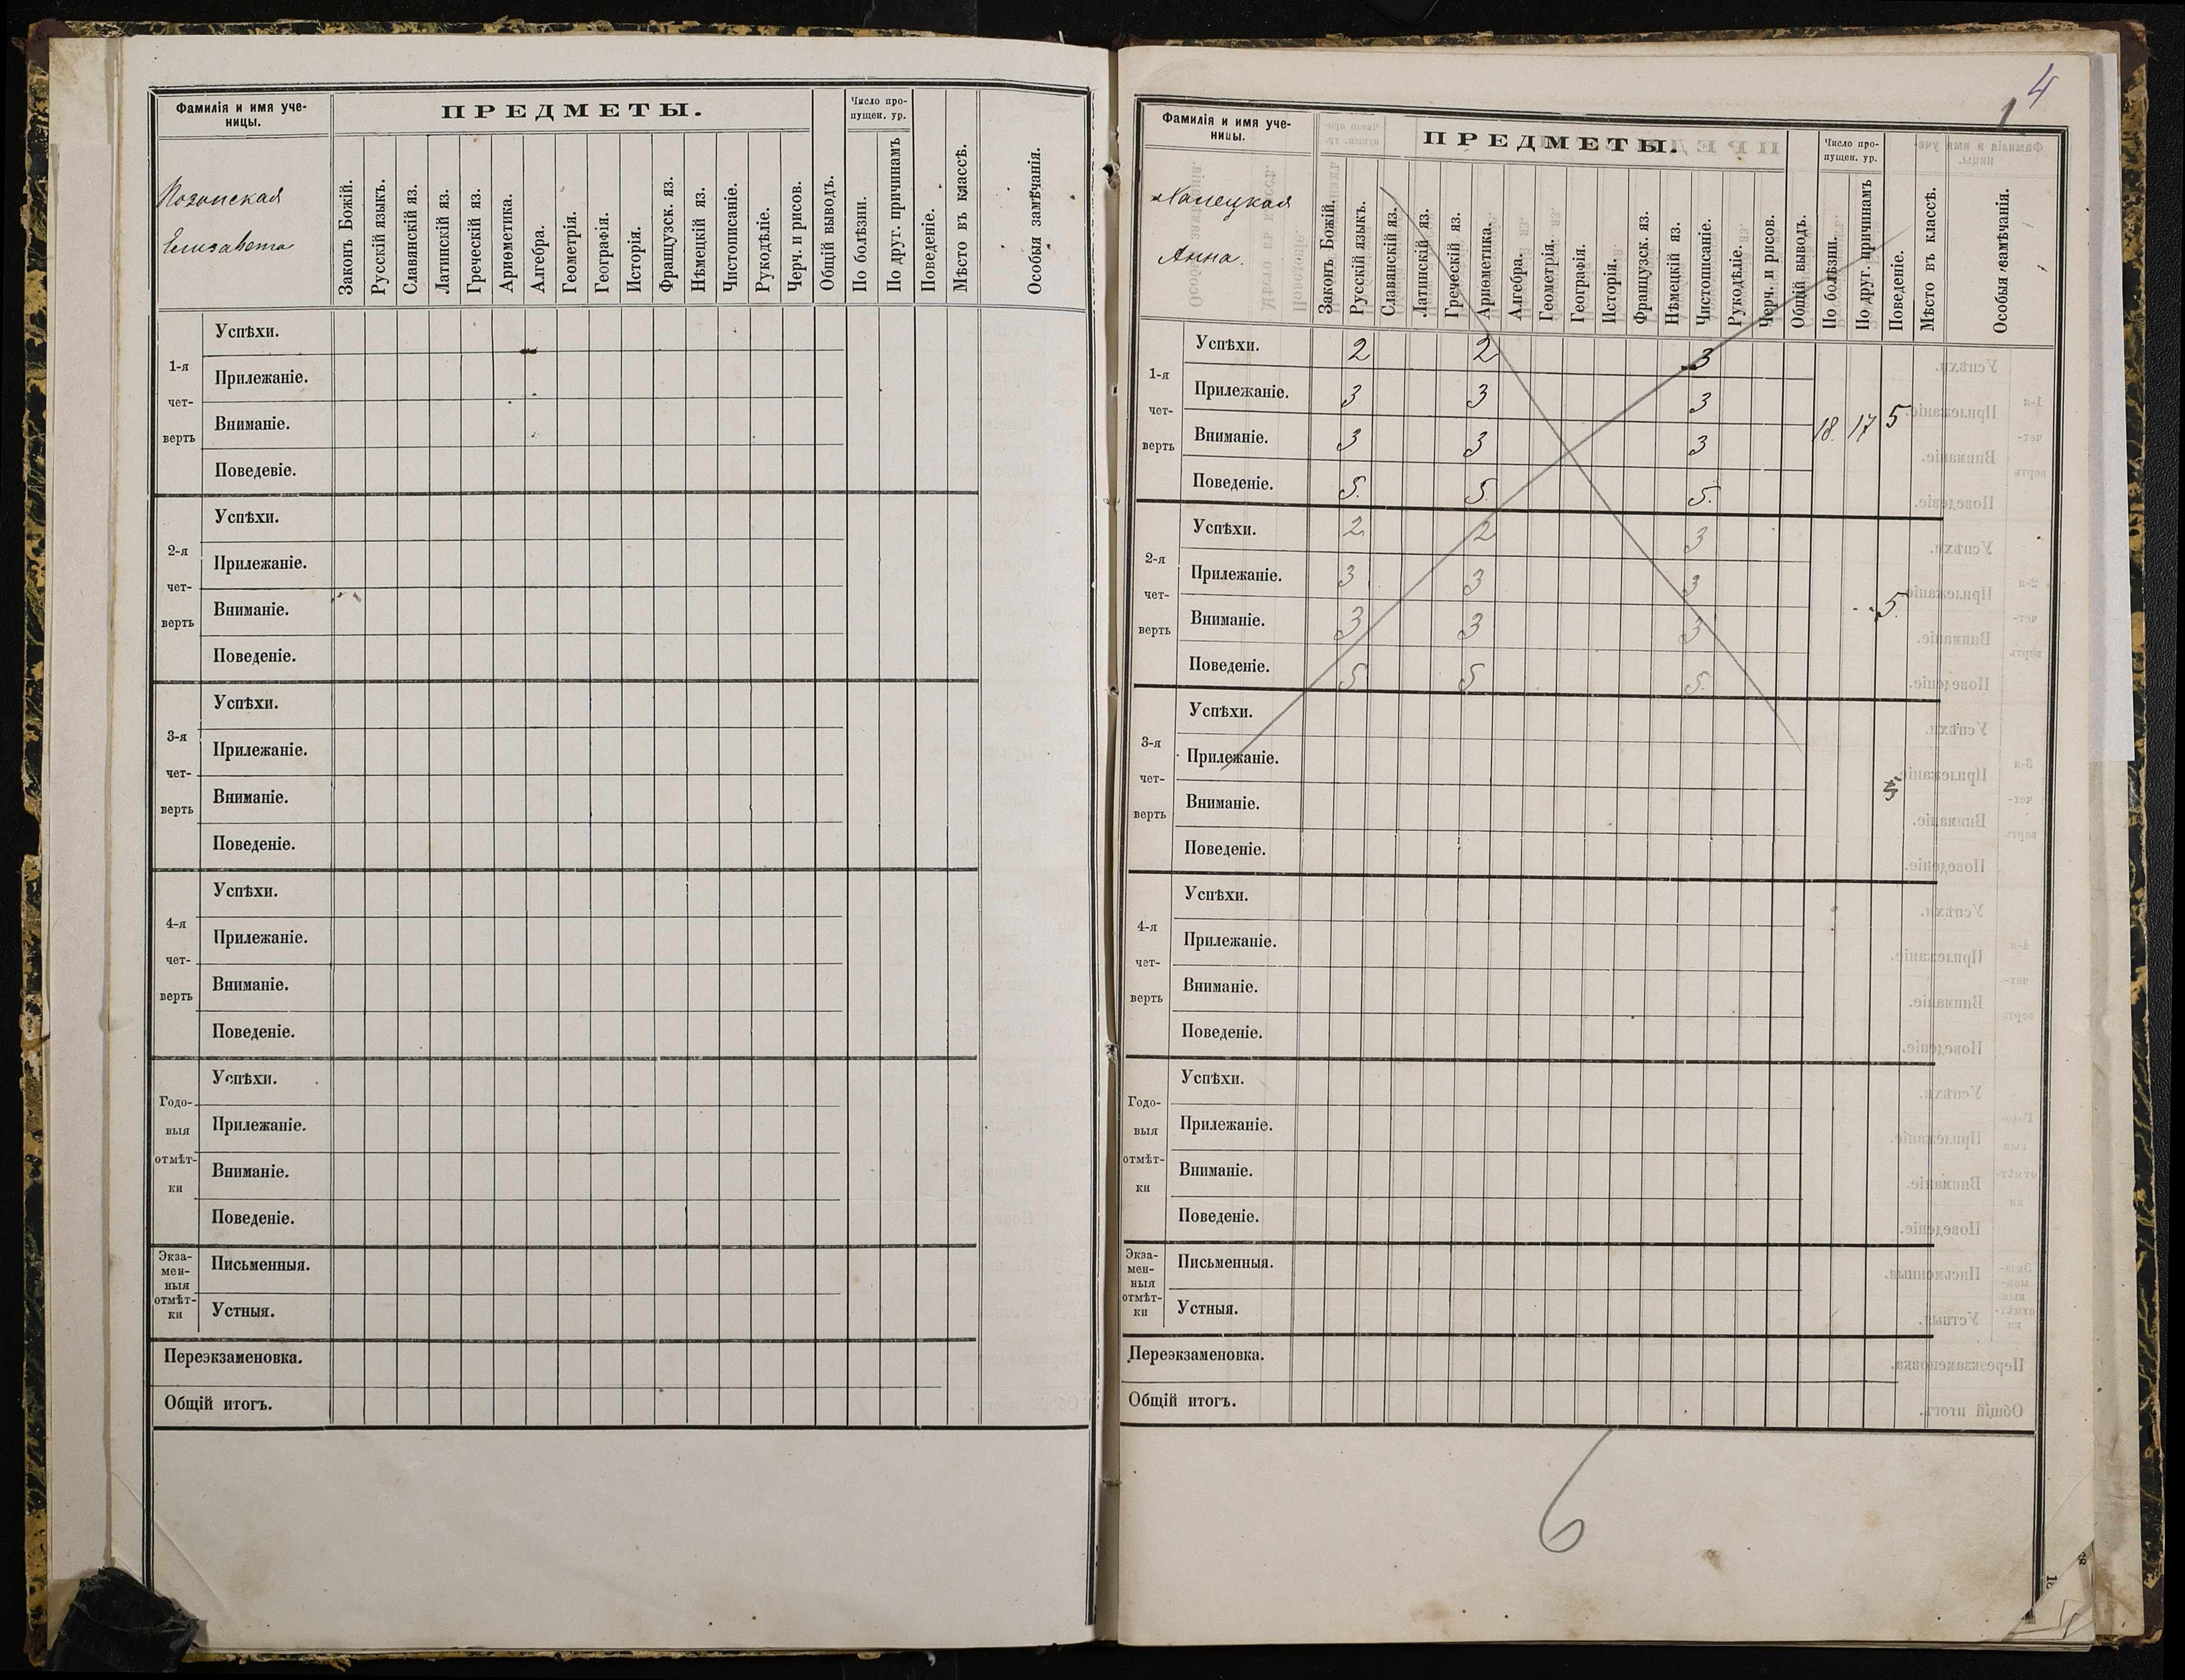 Фамилія и имя уче-
ницы.
ПРЕДМЕТЫ.
Число про-
пущен. ур.
Елизавета
Законъ Божій.
Русскій языкъ.
Славянскій яз.
Латинскій яз.
Греческій яз.
Ариѳметика.
Алгебра.
Геометрія.
Географія.
Исторія.
Французск. яз.
Нѣмецкій яз.
Чистописаніе.
Рукодѣліе.
Черч. и рисов.
Общій выводъ.
По болѣзни.
По друг. причинамъ
Поведеніе.
Мѣсто въ классѣ.
Особыя замѣчанія.
1-я чет- верть
Успѣхи.
Прилежаніе.
Вниманіе.
Поведевіе.
2-я чет- верть
Успѣхи.
Прилежаніе.
Вниманіе.
Поведеніе.
3-я чет- верть
Успѣхи.
Прилежаніе.
Вниманіе.
Поведеніе.
4-я чет- верть
Успѣхи.
Прилежаніе.
Вниманіе.
Поведеніе.
Годо- выя отмѣт- ки
Успѣхи.
Прилежаніе.
Вниманіе.
Поведеніе.
Экза- мен- ныя отмѣт- ки
Письменныя.
Устныя.
Переэкзаменовка.
Общій итогъ.
4
1
Фамилія и имя уче-
ницы.
ПРЕДМЕТЫ.
Число про-
пущен. ур.
Анна.
Законъ Божій.
Русскій языкъ.
Славянскій яз.
Латинскій яз.
Греческій яз.
Ариѳметика.
Алгебра.
Геометрія.
Географія.
Исторія.
Французск. яз.
Нѣмецкій яз.
Чистописаніе.
Рукодѣліе.
Черч. и рисов.
Общій выводъ.
По болѣзни.
По друг. причинамъ
Поведеніе.
Мѣсто въ классѣ.
Особыя замѣчанія.
1-я чет- верть
Успѣхи. 2 2 3
Прилежаніе. 3 3 3
Вниманіе. 3 3 3 18. 17 5
Поведеніе. 5. 5. 5.
2-я чет- верть
Успѣхи. 2 2 3
Прилежаніе. 3 3 3
Вниманіе. 3 3 3 5.
Поведеніе. 5 5 5.
3-я чет- верть
Успѣхи.
Прилежаніе.
Вниманіе.
Поведеніе.
4-я чет- верть
Успѣхи.
Прилежаніе.
Вниманіе.
Поведеніе.
Годо- выя отмѣт- ки
Успѣхи.
Прилежаніе.
Вниманіе.
Поведеніе.
Экза- мен- ныя отмѣт- ки
Письменныя.
Устныя.
Переэкзаменовка.
Общій итогъ.
6